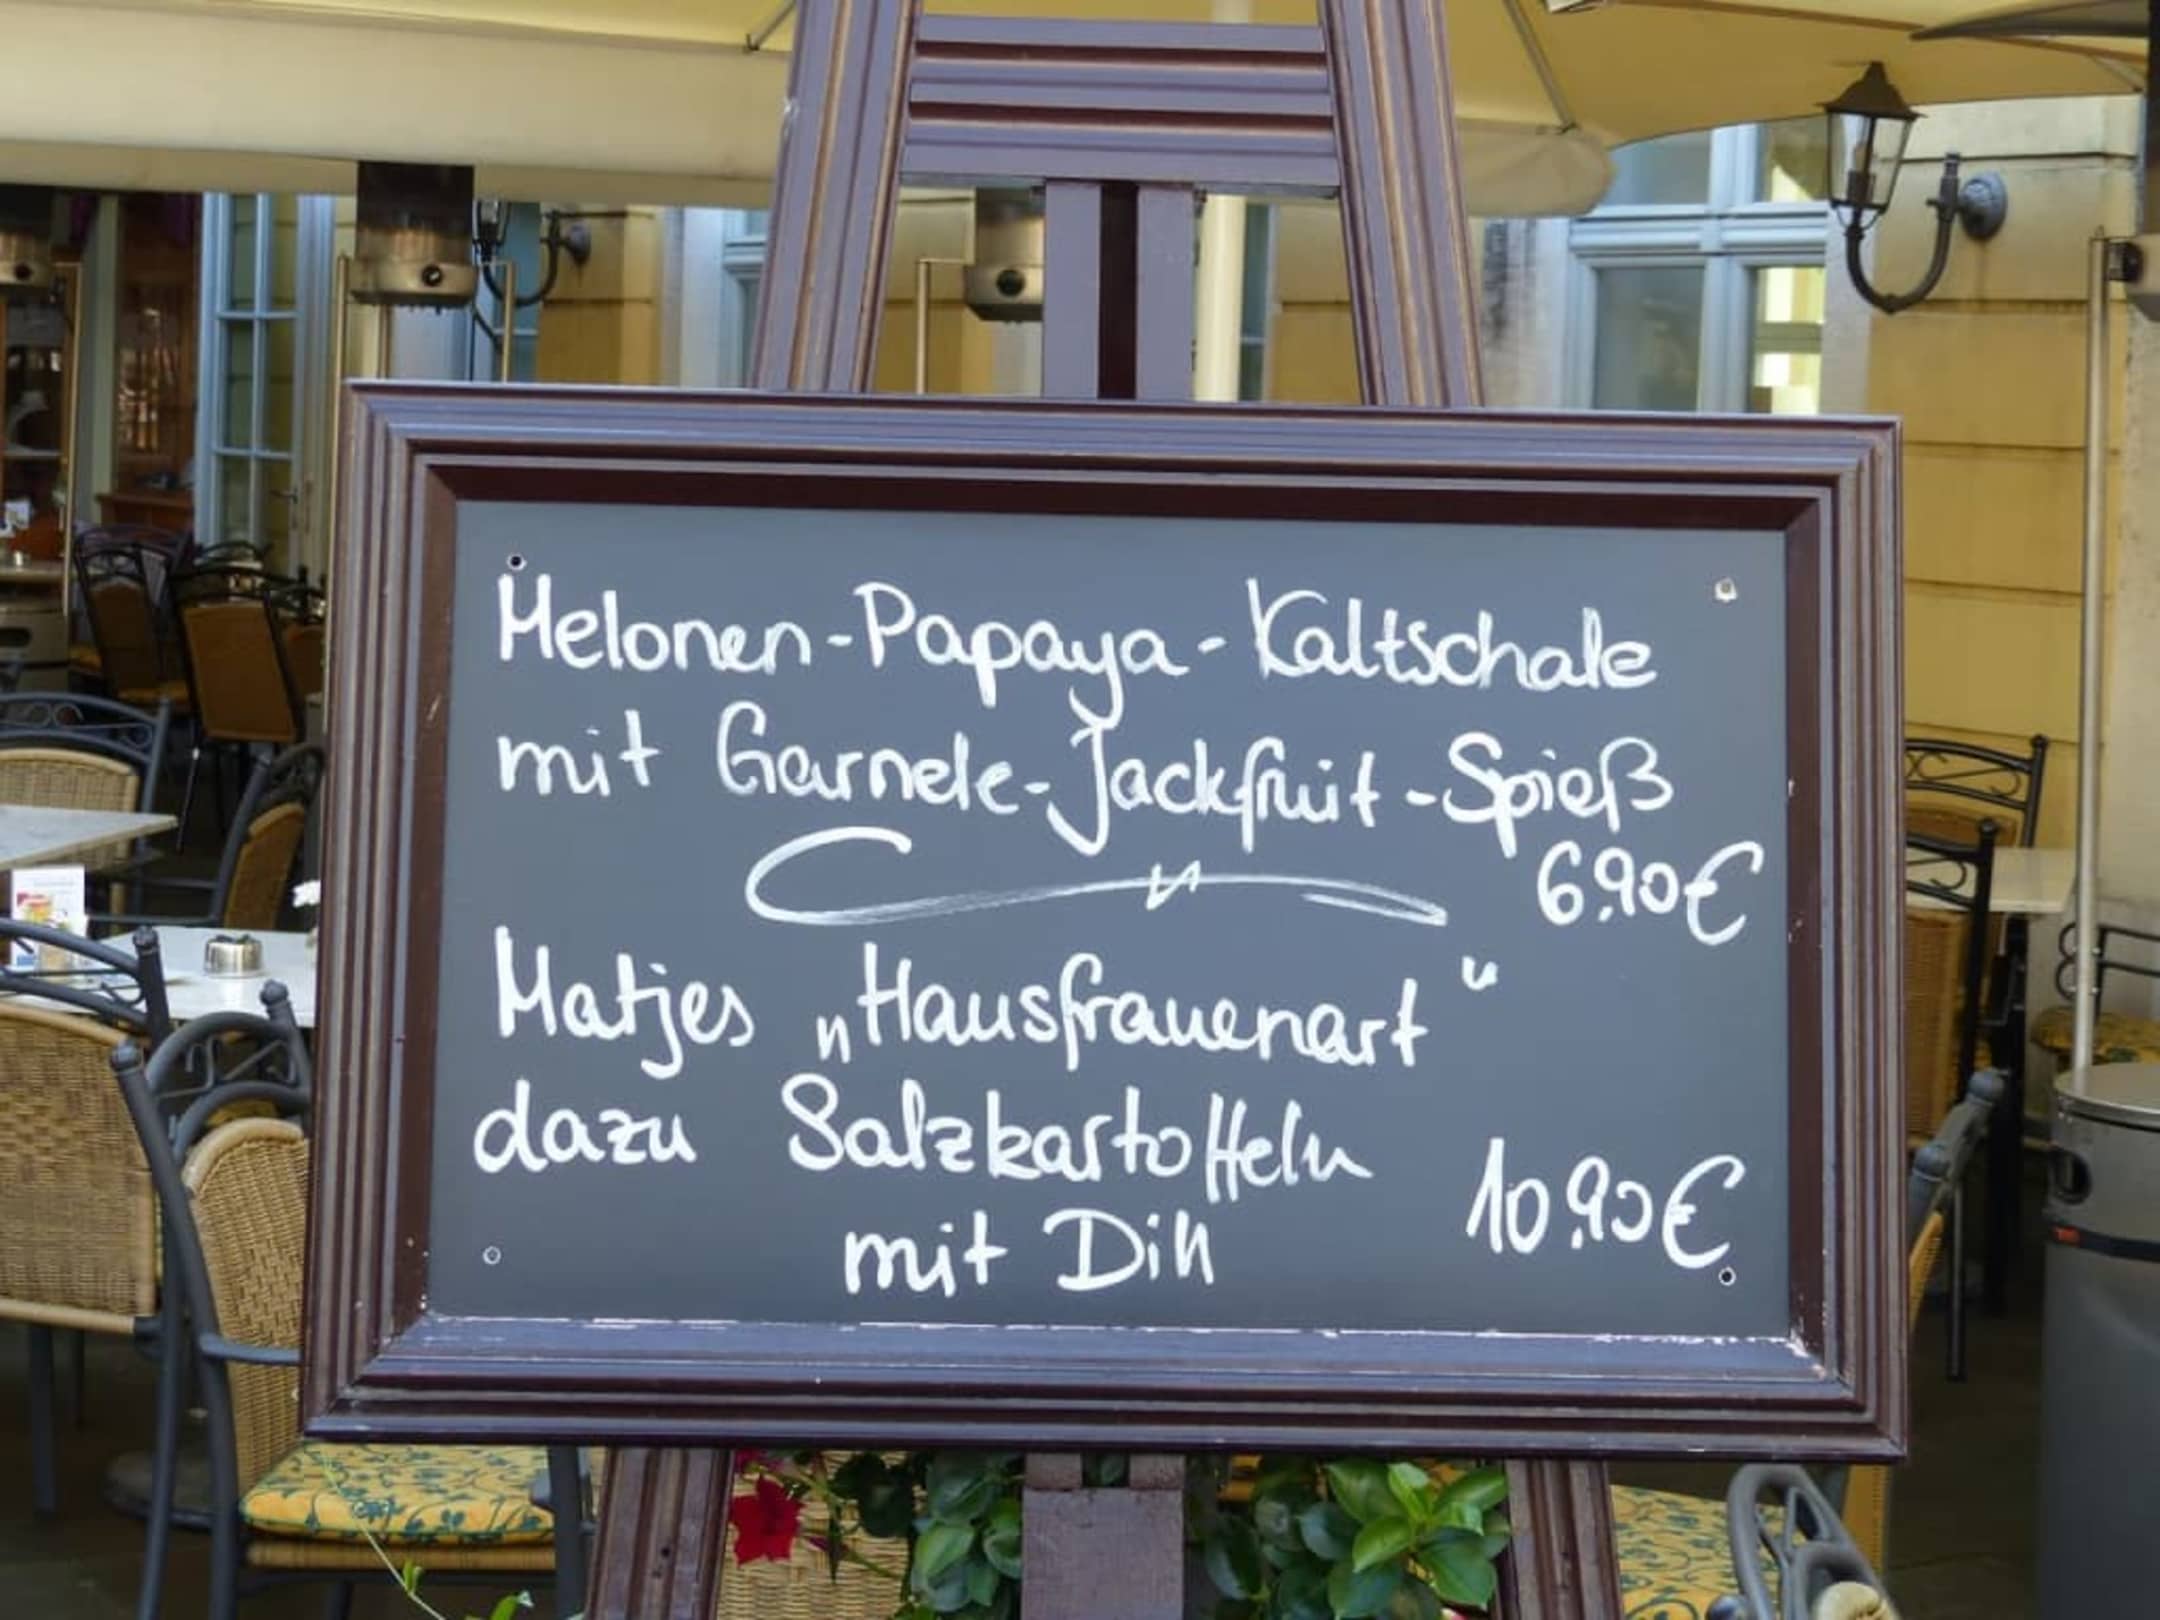 Melonen-Papaya-Kaltschale
mit Garnele-Jackfruit-Spieß
6,90€
Matjes „Hausfrauenart“
dazu Salzkartoffeln
mit Dill
10,90€